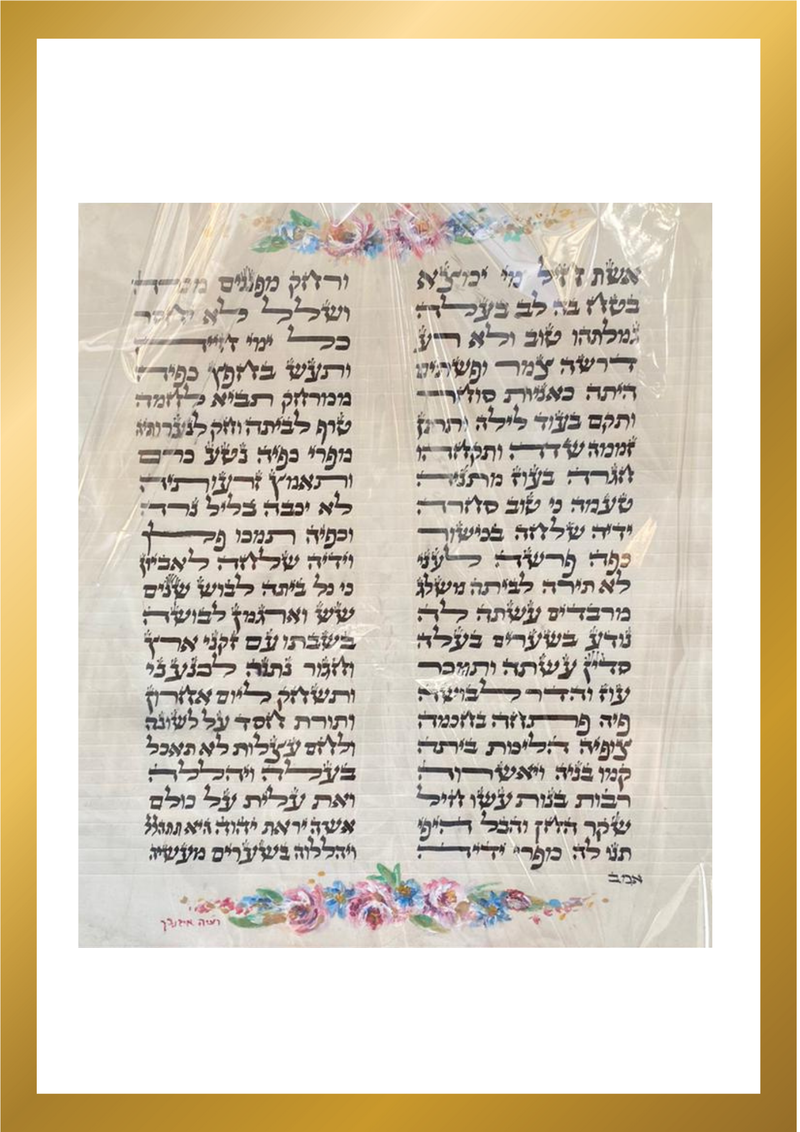 אשת חיל מי ימצא ורחק מפנינים מכרה
בטח בה לב בעלה ושלל לא יחסר
גמלתהו טוב ולא רע כל ימי חייה
דרשה צמר ופשתים ותעש בחפץ כפיה
היתה כאניות סוחר ממרחק תביא לחמה
ותקם בעוד לילה ותתן טרף לביתה וחק לנערותיה
זממה שדה ותקחהו מפרי כפיה נטע כרם
חגרה בעוז מתניה ותאמץ זרעותיה
טעמה כי טוב סחרה לא יכבה בליל נרה
ידיה שלחה בכישור וכפיה תמכו פלך
כפה פרשה לעני וידיה שלחה לאביון
לא תירא לביתה משלג כי כל ביתה לבוש שנים
מרבדים עשתה לה שש וארגמן לבושה
נודע בשערים בעלה בשבתו עם זקני ארץ
סדין עשתה ותמכר וחגור נתנה לכנעני
עוז והדר לבושה ותשחק ליום אחרון
פיה פתחה בחכמה ותורת חסד על לשונה
צופיה הליכות ביתה ולחם עצלות לא תאכל
קמו בניה ויאשרוה בעלה ויהללה
רבות בנות עשו חיל ואת עלית על כולם
שקר החן והבל היפי אשה יראת יהוה היא תתהלל
תנו לה מפרי ידיה ויהללוה בשערים מעשיה